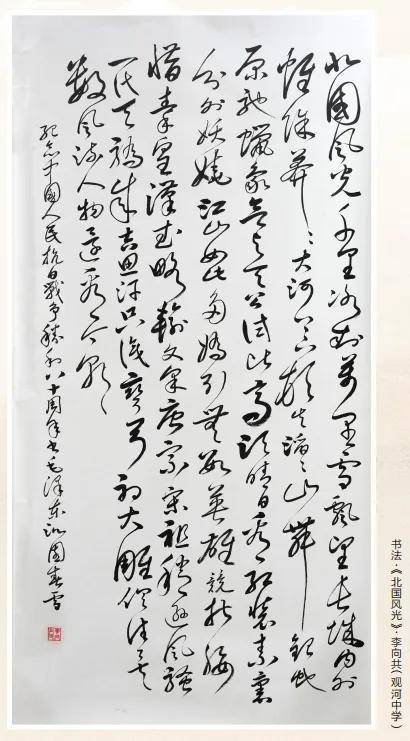 北國风光千里冰封万里雪飘望长城内外
惟馀莽莽大河上下顿失滔滔山舞银蛇
原驰蜡象欲与天公试比高须晴日看红装素裹
分外妖娆江山如此多娇引无数英雄竞折腰
惜秦皇汉武略输文采唐宗宋祖稍逊风骚
一代天骄成吉思汗只识弯弓射大雕俱往矣
数风流人物还看今朝
纪念中國人民抗日戰争勝利八十周年书毛泽东沁园春雪
书法·《北国风光》·李向共（观河中学）